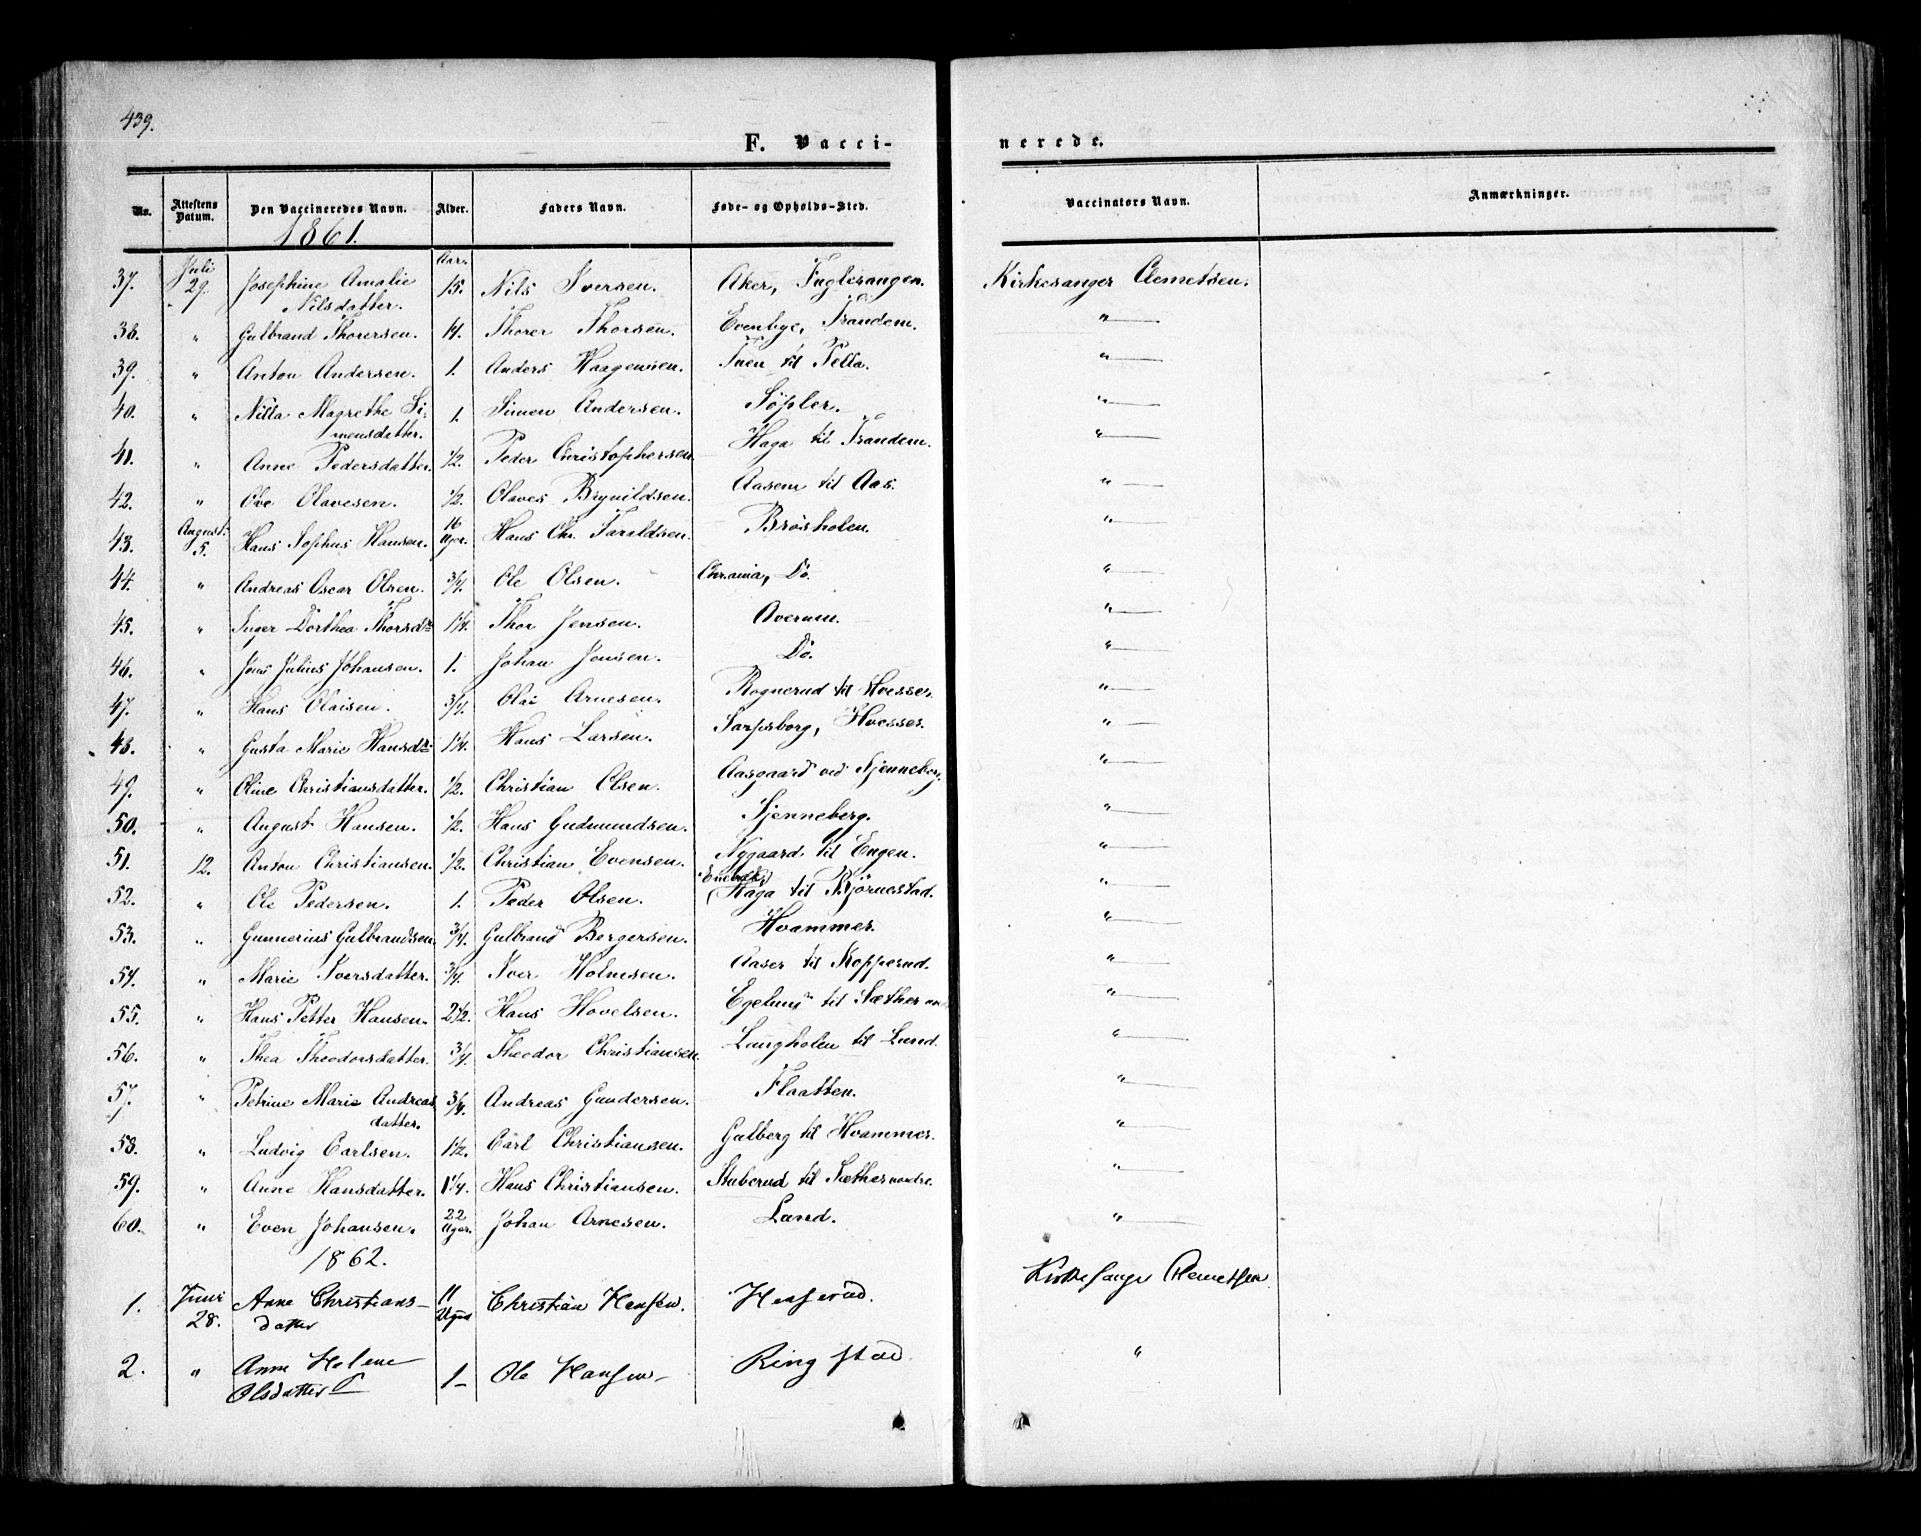 439.
F. Vacci-
nerede.
No. Attestens Datum. Den Vaccineredes Navn. Alder. Faders Navn. Føde- og Opholds-Sted. Vaccinators Navn. Anmærkninger.
1861.
Aar.
37. Juli 29. Josephine Amalie Nilsdatter. 15. Nils Iversen. Aker, Fuglesangen. Kirkesanger Clemetsen.
38. " Gulbrand Thorersen. 14. Thorer Thorsen. Evenbye, Trandem. "
39. " Anton Andersen. 1. Anders Haagensen. Tuen til Tella. "
40. " Nilla Magrethe Simensdatter. 1. Simen Andersen. Søpler. "
41. " Anne Pedersdatter. 1/2. Peder Christophersen. Haga til Trandem. "
42. " Ove Olavesen. 1/2. Olaves Brynildsen. Aasem til Aas. "
43. August 5. Hans Sophus Hansen. 16 Uger. Hans Chr. Taraldsen. Brøsholen. "
44. " Andreas Oscar Olsen. 3/4. Ole Olsen. Chrania, Do. "
45. " Inger Dorthea Thorsdr. 1 1/4. Thor Jensen. Averum. "
46. " Jens Julius Johansen. 1. Johan Jensen. Do. "
47. " Hans Olaisen. 3/4. Olai Arnesen. Rognerud til Hvesser. "
48. " Gusta Marie Hansdr. 1 1/4. Hans Larsen. Sarpsborg, Hvesser. "
49. " Oline Christiansdatter. 1/2. Christian Olsen. Aasgaard ved Sjenneberg. "
50. " August Hansen. 1/2. Hans Gudmundsen. Sjenneberg. "
51. 12. Anton Christiansen. 1/2. Christian Evensen. Nygaard til Engen. "
52. " Ole Pedersen. 1. Peder Olsen. (Enebak) Haga til Bjørnestad. "
53. " Gunnerius Gulbrandsen. 3/4. Gulbrand Bergersen. Hvammer. "
54. " Marie Iversdatter. 3/4. Iver Holmsen. Aaser til Kopperud. "
55. " Hans Petter Hansen. 2 1/2. Hans Hovelsen. Egelund til Sæther "
56. " Thea Theodorsdatter. 3/4. Theodor Christiansen. Langholen til Lund. "
57. " Petrine Marie Andreasdatter. 3/4. Andreas Gundersen. Flaatten. "
58. " Ludvig Carlsen. 1 1/2. Carl Christiansen. Gulberg til Hvammer. "
59. " Anne Hansdatter. 1 1/4. Hans Christiansen. Stuberud til Sæther nordre. "
60. " Even Johansen. 22 Uger. Johan Arnesen. Lund. "
1862.
1. Juni 28. Anne Christiansdatter 11 Uger Christian Hansen. Hensrud. Kirkesanger Clemetsen
2. " Anne Helene Olsdatter 1 Ole Hansen Ringstad. "